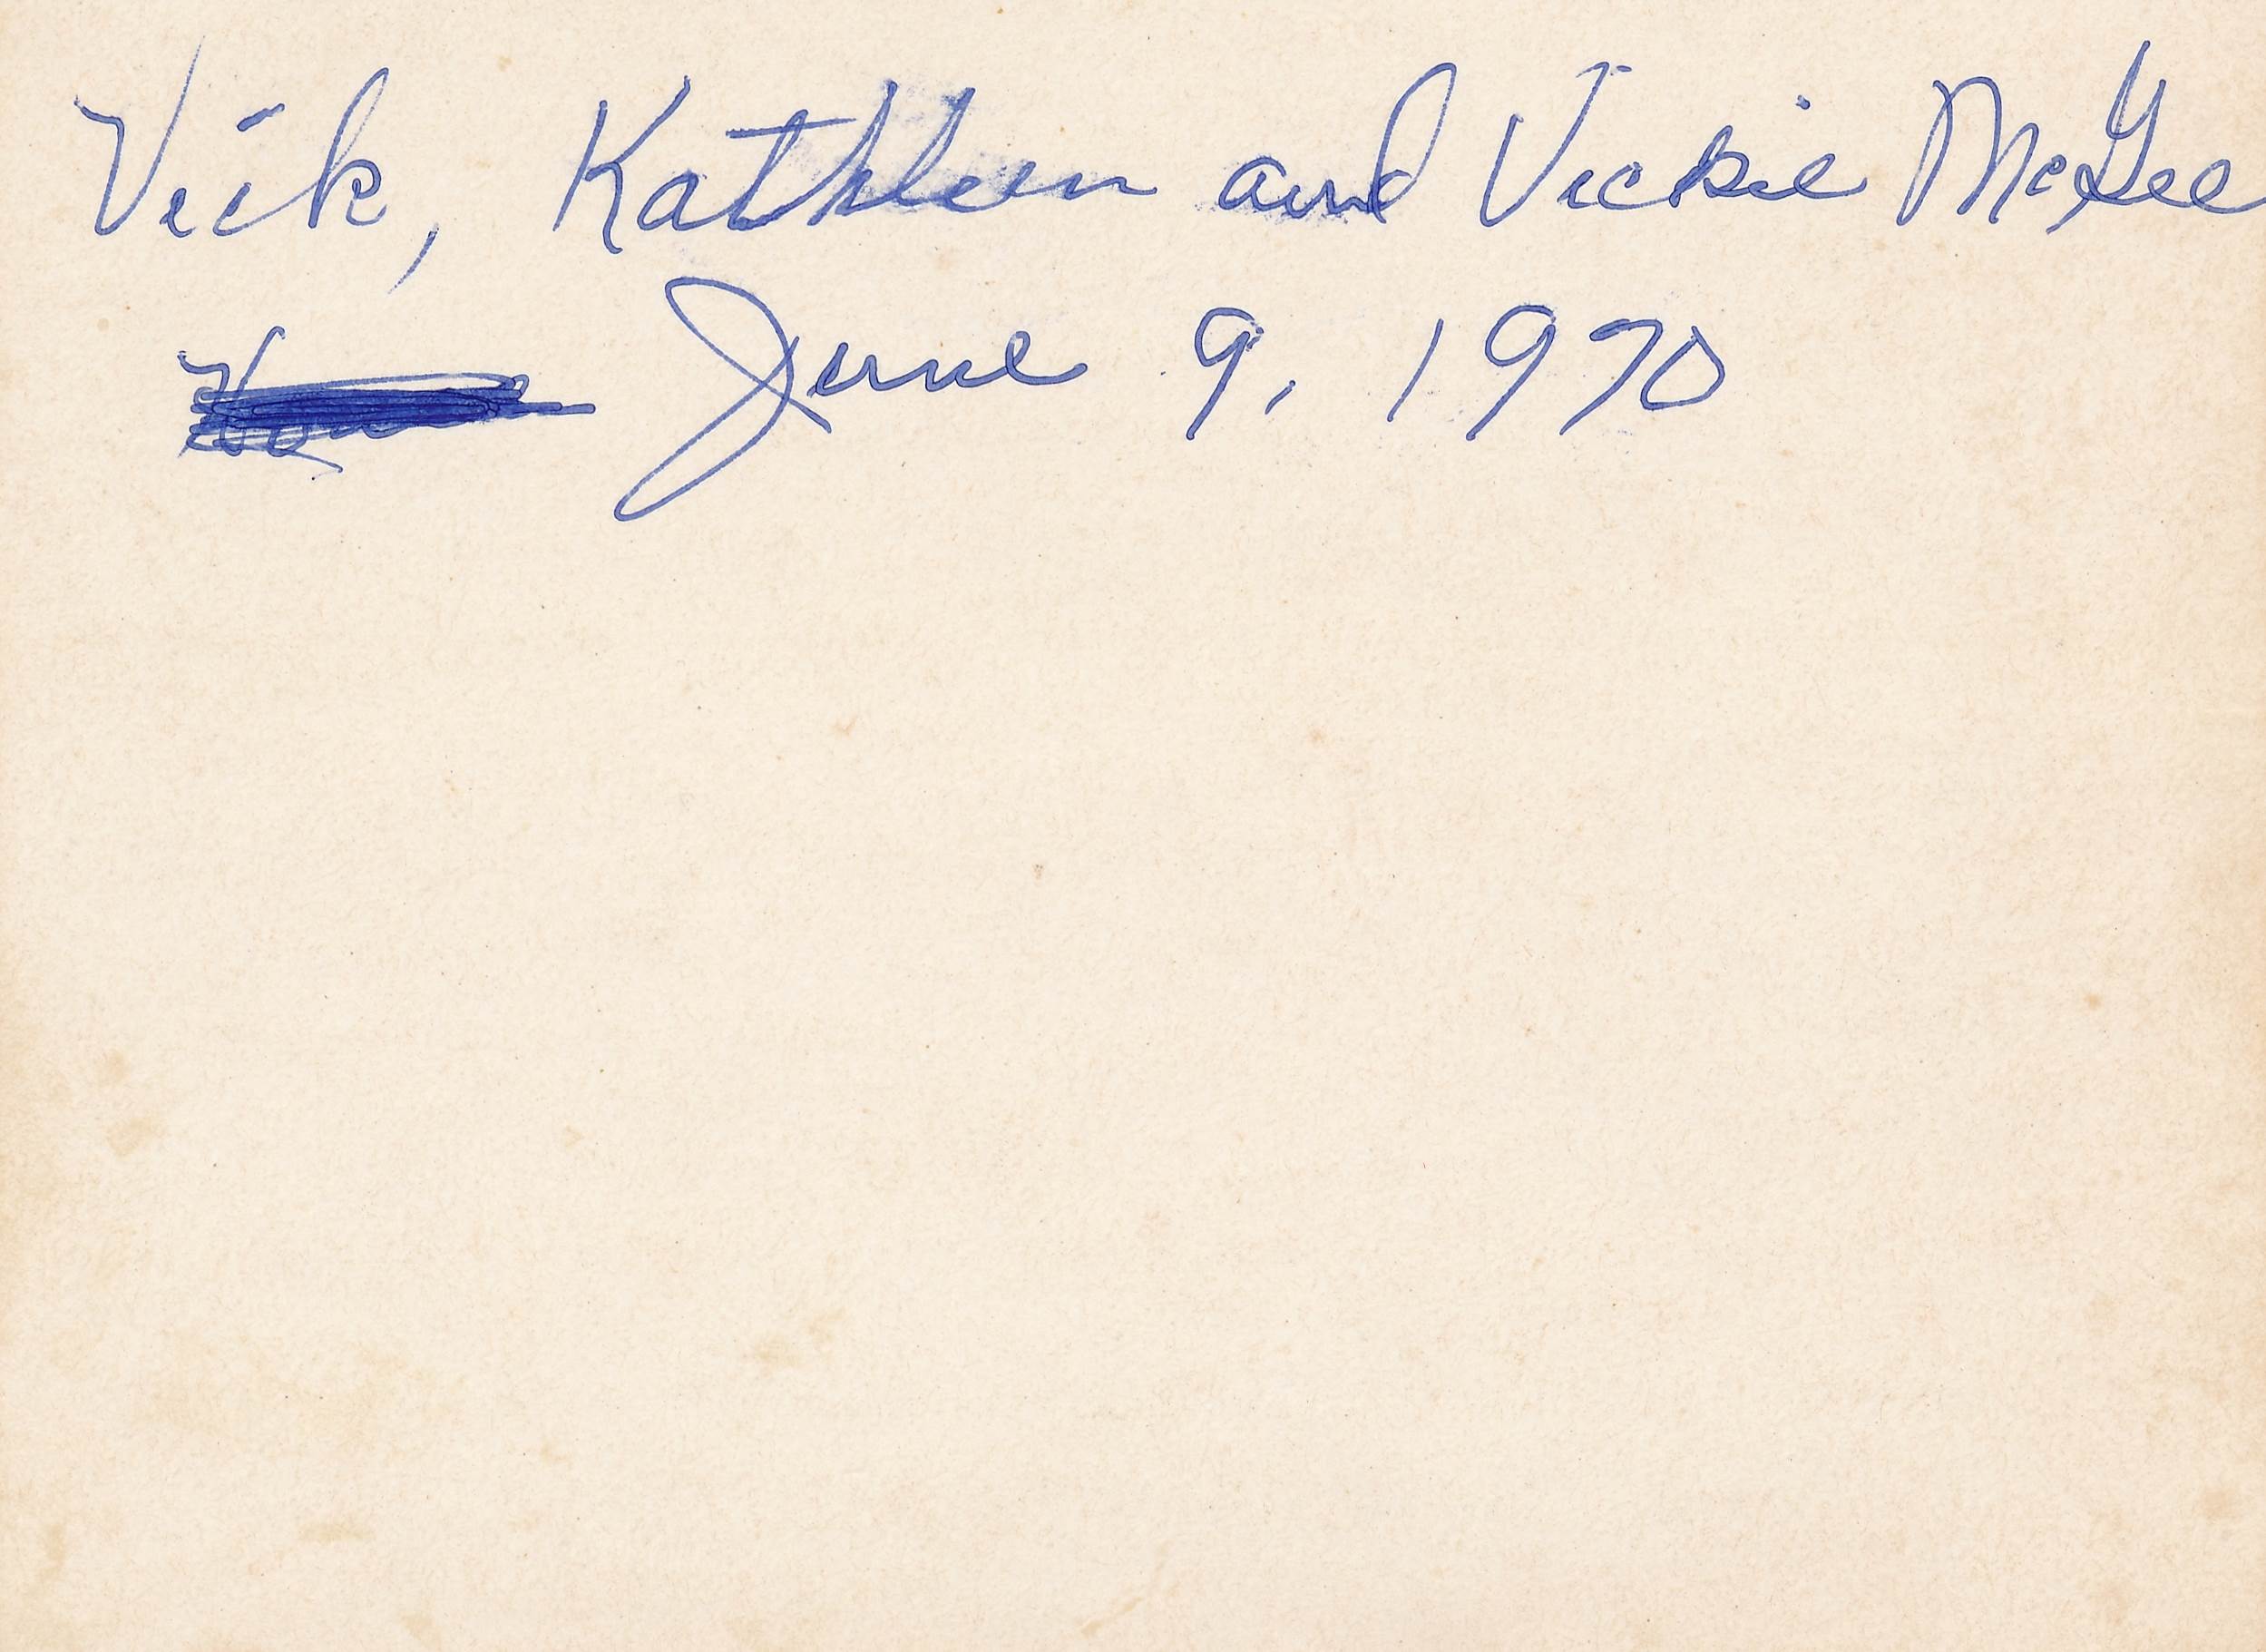 Vick, Kathleen and Vickie McGee
June 9, 1970